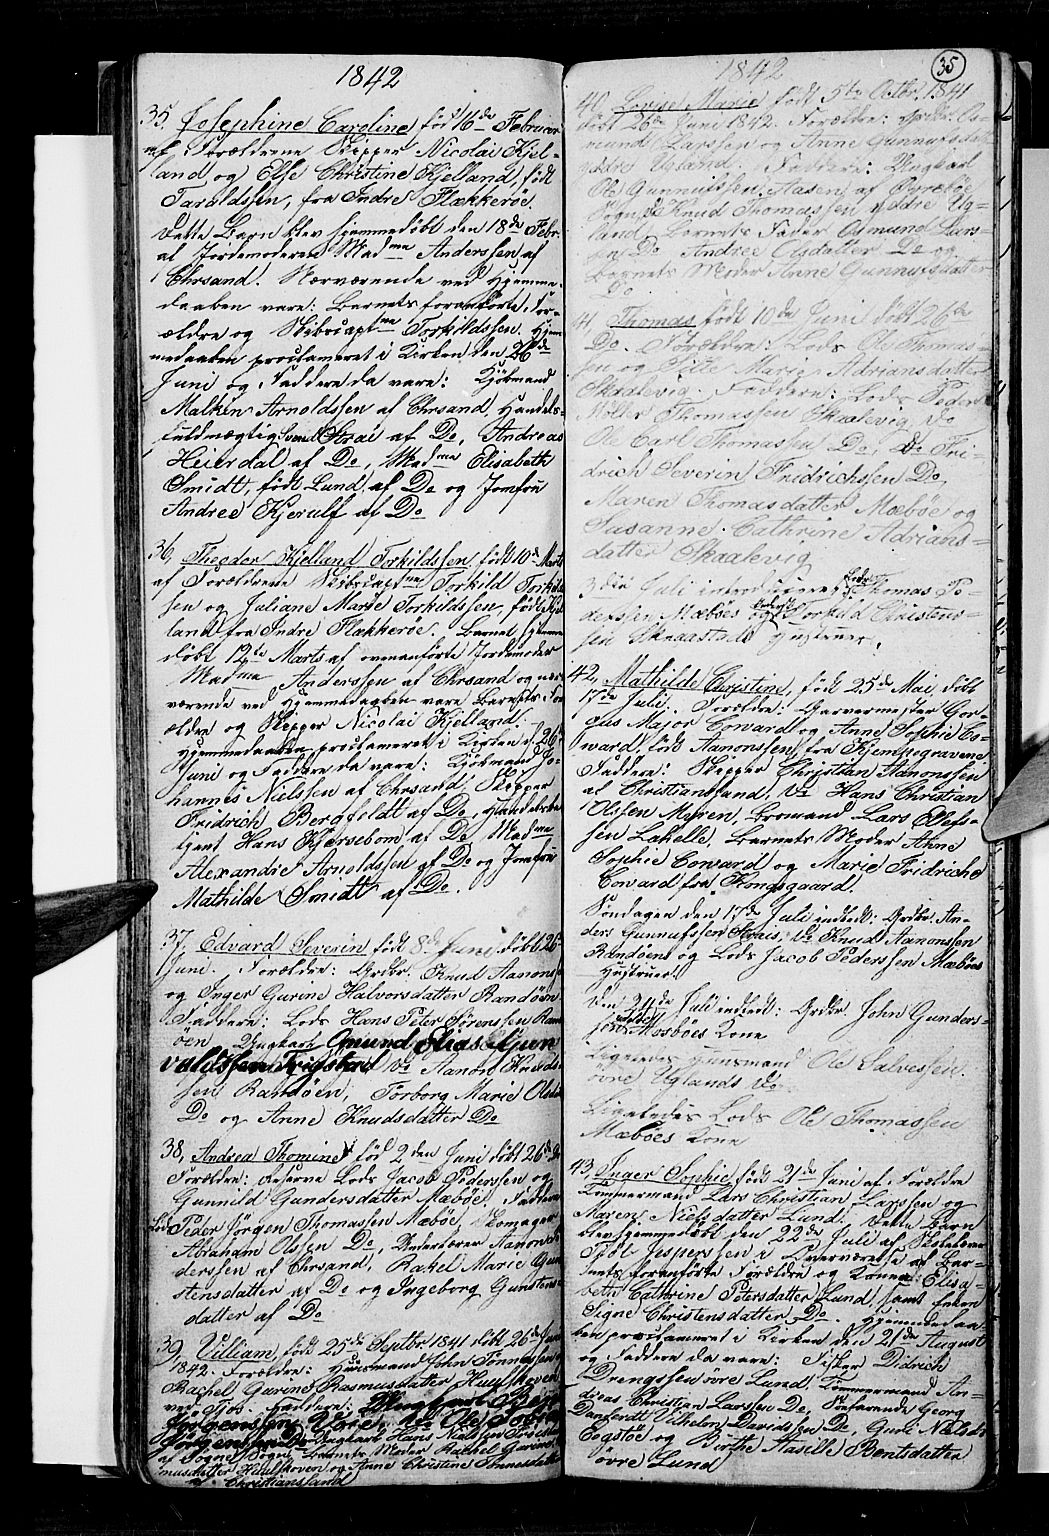 1842
35, Josephine Caroline født 16de Februar
af Forældrene Skipper Nicolai Kjel-
land og Else Christine Kjelland, født
Taraldssen, fra Indre Flækkerøe.
Dette Barn blev hjemmedøbt den 18de Febr.
af Jordemoderen Madme Anderssen af
Chrsand. Nærværende ved Hjemme-
daaben vare: Barnets foranførte For-
ældre og Skibscaptme Torkildssen. Hjem-
medaaben proclameret i Kirken den 26de
Juni og Faddere da vare: Kjøbmand
Malkin Arnoldssen af Chrsand, Handels-
fuldmægtig Svend Strai af Do, Andreas
Heierdal af Do, Madme Elisabeth
Smidt, født Lund af Do og Jomfru
Andree Kjerulf af Do
36, Theodor Kjelland Torkildssen, født 10de Marts
af Forældrene Skibscaptme Torkild Torkild-
sen og Juliane Marie Torkildssen, født Kjel-
land fra Indre Flækkerøe. Barnet hjemme-
døbt 12te Marts af ovenanførte Jordemoder
Madme Anderssen af Chrsand og nær-
værende ved Hjemmedaaben vare Barnets For-
ældre og Skipper Nicolai Kjelland.
Hjemmedaaben proclameret i Kirken d. 26de
Juni og Faddere da vare: Kjøbmand Jo-
hannes Nielssen af Chrsand, Skipper
Fridrich Bergfeldt af Do, Handelsbe-
tjent Hans Kjørsebom af Do, Madme
Alexandrie Arnoldssen af Do og Jomfru
Mathilde Smidt af Do.
37, Edvard Severin født 8de Juni, døbt 26de
Juni. Forældre: Grdbr. Knud Aanons-
og Inger Gurine Halvorsdatter Randøen
Faddere: Lods Hans Peter Sørenssen Rand-
øen, Ungkarl Gmund Elias Gun
valdssen Trigstad Do Aanon Knuds-
sen Randøen, Torborg Marie Olsd
Do og Anne Knudsdatter Do
38, Andrea Thomine, fød 2den Juni døbt 26de Do
Forældre: Reserve Lods Jacob Pederssen og
Gunnild Gundersdatter Mæbøe. Faddere
Lods Peder Jørgen Thomassen Mæbøe, Skomager
Abraham Olssen Do, Underbærer Aanon An-
derssen af Chrsand, Rakel Marie Gun
stensdatter af Do og Ingeborg Gunstens-
datter af Do
39, Villiam, født 25de Septbr 1841 døbt 26de Juni
1842. Forældre: Huusmand John Tønnessen
Rachel Gurine Rasmusdatter Huulskoven
ved Kjos. Faddere: Ungkarl
Jørgenssen Do Ole Tobias
Jørgenssen Do Ungkarl Hans Nielssen
af Sogne Sogn, Barnets Moder Rachel Gurine
musdatter Huulskoven og Anne Christine Tønnesdatter
Christianssand
35
1842
40, Lovise Marie født 5te Octbr. 1841
døbt 26de Juni 1842. Forældre: Grdbr. Os-
mund Larssen og Anne Gunnufsdtr
ydre Ugland. Faddere: Ungkarl
Ole Gunnufssen Aasen af Øyrebøe
Sogn, Do Knud Thomassen ydre Ug-
land, Barnets Fader Osmund Lars-
sen Do, Andree Olsdatter Do og
Barnets Moder Anne Gunnufsdatter
Do.
41, Thomas født 10de Juni døbt 26de
Do. Forældre: Lods Ole Thomas-
sen og Sille Marie Adriansdatter
Skaalevig. Faddere: Lods Peder
Møller Thomassen Skaalevig, Do
Ole Carl Thomassen Do, Do Fri-
drich Severin Fridrichssen Do,
Maren Thomasdatter Mæbøe og
Susanne Cathrine Adrians-
datter Skaalevig
3die Juli introduceret Lods Thomas Pe-
derssen Mæbøes og Torkild Christens-
sen Hustruer.
42, Mathilde Christine, født 25de Mai, døbt
17de Juli. Forældre: Garvermester Gor-
gus Major Coward og Anne Sophie Co-
ward, født Aanonssen, fra Kjempegravene
Faddere: Skipper Christian Aanonssen
af Christianssand, Do Hans Christian
Olssen Møren, Bromand Lars Ellefs-
sen Lahelle, Barnets Moder Anne
Sophie Coward og Marie Fridriche
Coward fra Kongsgaard.
Søndagen den 17de Juli indledt: Grdbr. An-
ders Gunnufssen Strais, Do Knud Aanonssen
Randøens og Lods Jacob Pederssen Mæbøes
Hustruer.
Den 24de Juli indledt: Grdbr. John Gunders-
sen Mosbøes Kone
Ligeledes Huusmand Ole Salvessen
øvre Uglands Do
Ligeledes Lods Ole Thomassen
Mæbøes Kone
43, Inger Sophie, født 21de Juni af Forældre
Tømmermand Lars Christian Larssen og
Maren Nielsdatter Lund. Dette Barn
blev hjemmedøbt den 22de Juli af Skoleholder
Jespersen i Overværelse af Bar-
nets foranførte Forældre og Konen Elisa-
beth Cathrine Petersdatter Lund, samt Enken
Signe Christensdatter Do. Hjemmedaa-
ben proclameret i Kirken den 21de August
og Faddere da vare: Fisker Didrich
Drengssen øvre Lund, Tømmermand An-
dreas Christian Larssen Do, Søefarende Georg
Danfeldt Vilhelm Davidssen Do, Guri Nielsd.
Eegstøe og Birthe Aasille Bentsdatter
øvre Lund